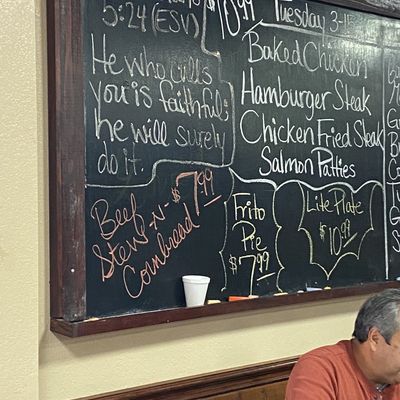 5:24 (ESV)
He who calls
you is faithful;
he will surely
do it.
$10.99
Tuesday 3-15
Baked Chicken
Hamburger Steak
Chicken Fried Steak
Salmon Patties
Beef
Stew-N-
Cornbread
$7.99
Frito
Pie
$7.99
Lite Plate
$10.99